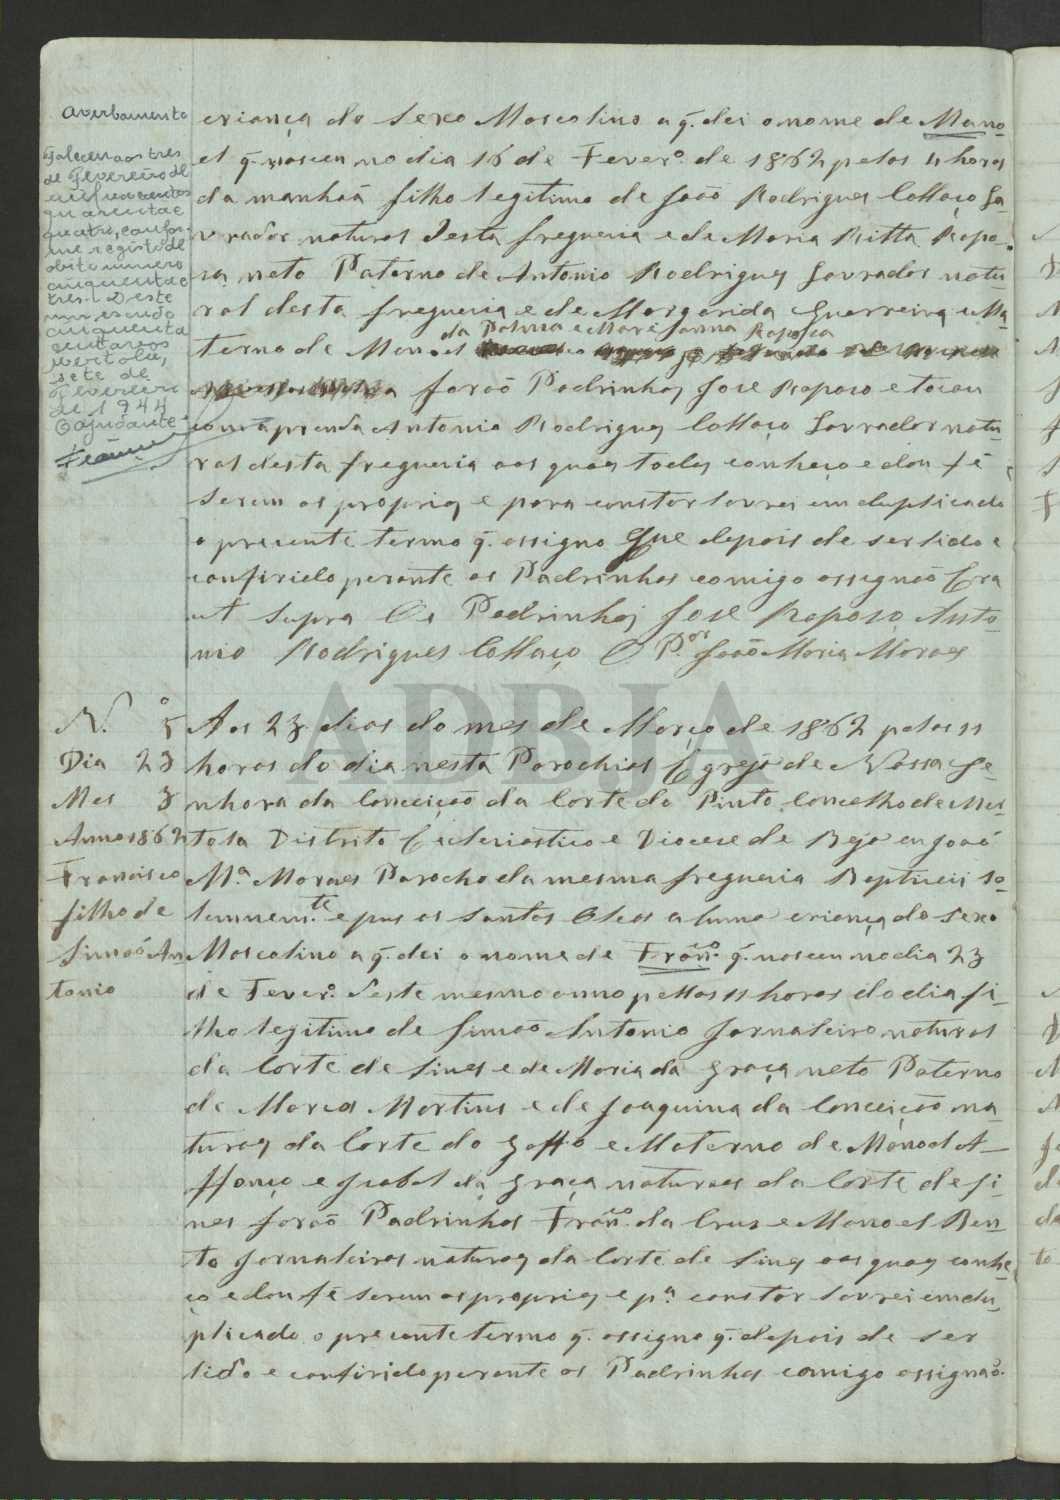 Averbamento
Faleceu aos tres
de Fevereiro de
mil novecentos
quarenta e
quatro, confor-
me registo de
obito numero
cinquenta e
tres. Deste
um escudo
cinquenta
centavos
Mertola,
sete de
Fevereiro
de 1944
O ajudante
criança do sexo Mascolino a q. dei o nome de Mano-
el q. nasceu no dia 16 de Fever.o de 1862 pelas 11 horas
da manhaã filho legitimo de Joaõ Rodrigues Collaço La-
vrador natural desta freguezia e de Maria Ritta Rapo-
za neto Paterno de Antonio Rodrigues Lavrador natu-
ral desta freguezia e de Margarida Guerreira e Ma-
da Palma e Mari Janna Raposa
terno de Manoel
foraõ Padrinhos José Raposo e tocou
com a prenda Antonio Rodrigues Collaço Lavrador natu-
ral desta freguezia aos quaes todos conheço e dou fé
serem os proprios e para constar lavrei em duplicado
o prezente termo q. assigno Que depois de ser lido e
confirido perante os Padrinhos comigo assignaõ Era
ut supra Os Padrinhos José Raposo Anto-
nio Rodrigues Collaço O P.or Joaõ Maria Moraes
N.o 5
Dia 23
Mes 3
Anno 1862
Francisco
filho de
Simaõ An-
tonio
Aos 23 dias do mes de Março de 1862 pelas 11
horas do dia nesta Parochial Egreja de Nossa Se-
nhora da Conceiçaõ da Corte do Pinto Concelho de Mer-
tola Distrito Ecleziastico e Diocese de Beja eu Joaõ
M.a Moraes Parocho da mesma freguezia Baptizei so-
lemnem.te e pus os Santos Oleos a huma criança do sexo
Mascolino a q. dei o nome de Fran.co q. nasceu no dia 23
de Fever.o deste mesmo anno pellas 11 horas do dia fi-
lho legitimo de Simaõ Antonio Jornaleiro natural
da Corte de Sines e de Maria da Graça neto Paterno
de Marcos Martins e de Joaquina da Conceiçaõ na-
turaes da Corte do Gaffo e Materno de Manoel A-
ffonço e Izabel da Graça naturaes da Corte de Si-
nes foraõ Padrinhos Fran.co da Crus e Manoel Ben-
to Jornaleiros naturaes da Corte de Sines aos quaes conhe-
ço e dou fé serem os proprios e p.a constar lavrei em du-
plicado o prezente termo q. assigno q. depois de ser
lido e confirido perante os Padrinhos comigo assignaõ.
ADBJA